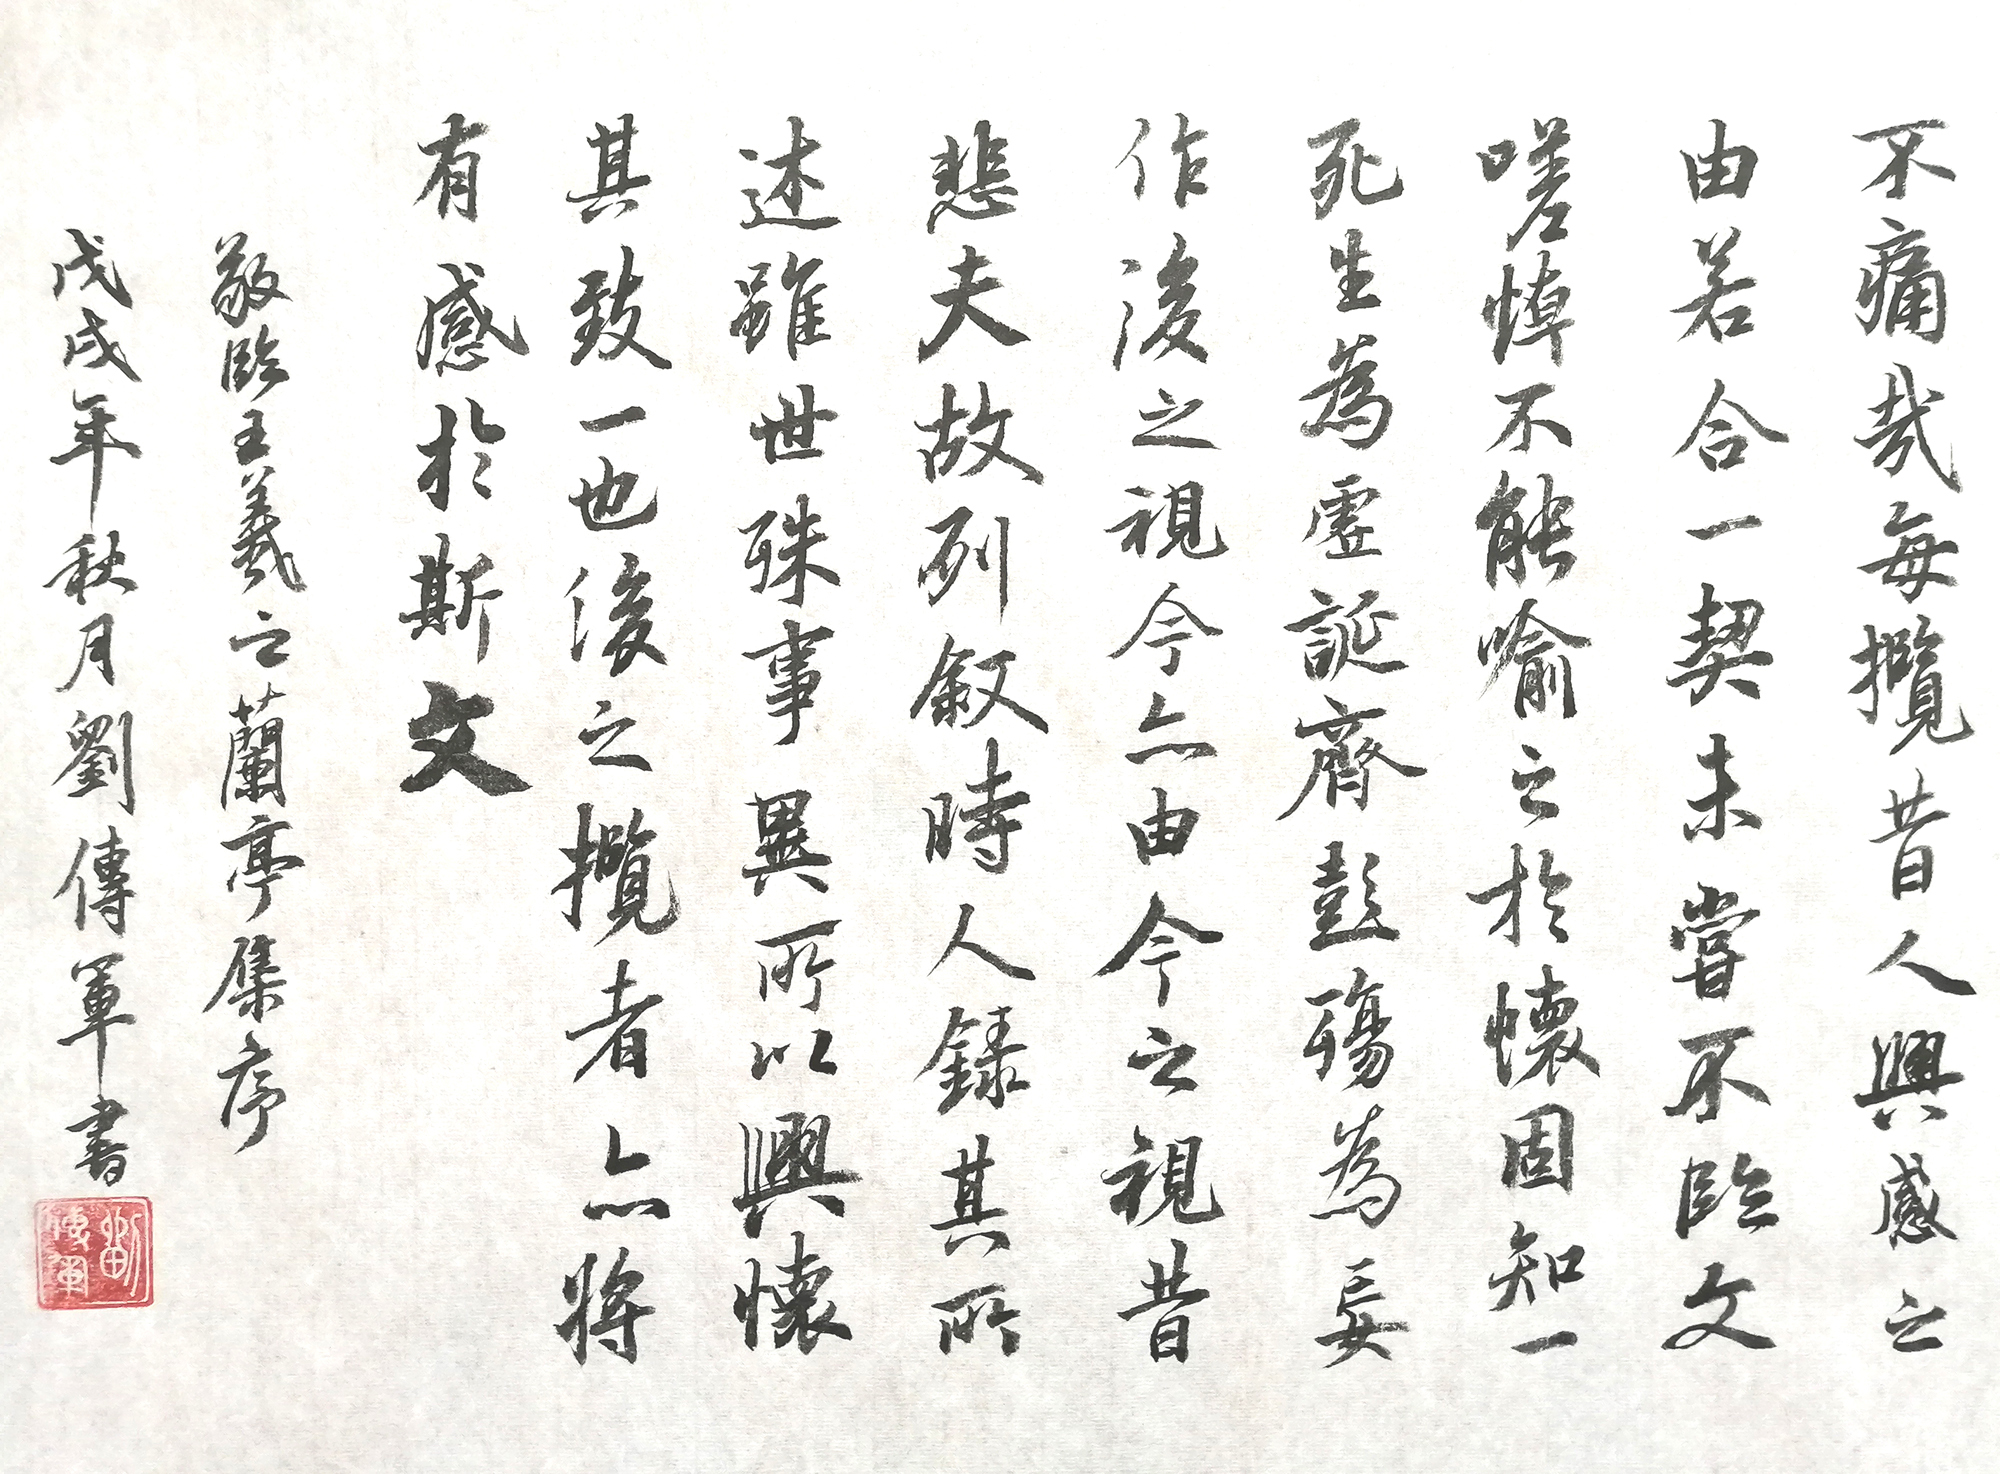 不痛哉每攬昔人興感之
由若合一契未嘗不臨文
嗟悼不能喻之於懷固知一
死生為虛誕齊彭殤為妄
作後之視今亦由今之視昔
悲夫故列敘時人錄其所
述雖世殊事異所以興懷
其致一也後之攬者亦將
有感於斯文
敬臨王羲之蘭亭集序
戊戌年秋月劉傳軍書
劉傳軍